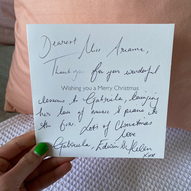 Dearest Miss Ariana,
Thank you for your wonderful
Wishing you a Merry Christmas
lessons to Gabriela, bringing
her love of music & piano to
the fire. Lots of Christmas
love
Gabriela, Helen
xxx